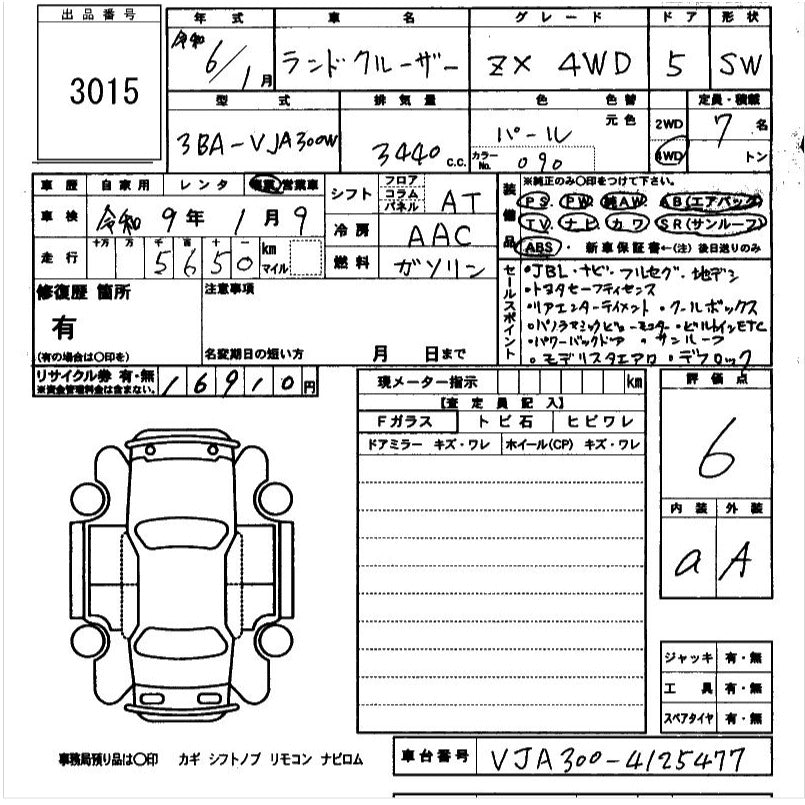 出品番号
3015
年式
令和 6/1月
車名
ランドクルーザー
グレード
ZX 4WD
ドア
5
形状
SW
型式
3BA-VJA300W
排気量
3440 c.c.
色 色替
パール 元色
カラーNo. 090
2WD
4WD
定員・積載
7名
トン
車歴 自家用 レンタ 営業車
車検 令和 9年 1月 9
走行 十万 万 千 百 十 一
5650 km マイル
シフト フロア コラム パネル AT
冷房 AAC
燃料 ガソリン
装備品
※純正のみ〇印をつけて下さい。
PS PW 純AW AB(エアバック)
TV ナビ カワ SR(サンルーフ)
ABS ・ 新車保証書←(注)後日送りのみ
セールスポイント
・JBL・ナビ・フルセグ・地デジ
・トヨタセーフティセンス
・リアエンターテイメント ・クールボックス
・パノラミックビューモニター ・ビルトインETC
・パワーバックドア ・サンルーフ
・モデリスタエアロ ・デフロック
修復歴 箇所
有
(有の場合は〇印を)
注意事項
名変期日の短い方 月 日まで
リサイクル券 有・無
※資金管理料金は含まない。
16910円
現メーター指示 km
【査定員記入】
Fガラス トビ石 ヒビワレ
ドアミラー キズ・ワレ ホイール(CP) キズ・ワレ
評価点
6
内装 外装
a A
ジャッキ 有・無
工具 有・無
スペアタイヤ 有・無
事務局預り品は〇印 カギ シフトノブ リモコン ナビロム
車台番号 VJA300-4125477